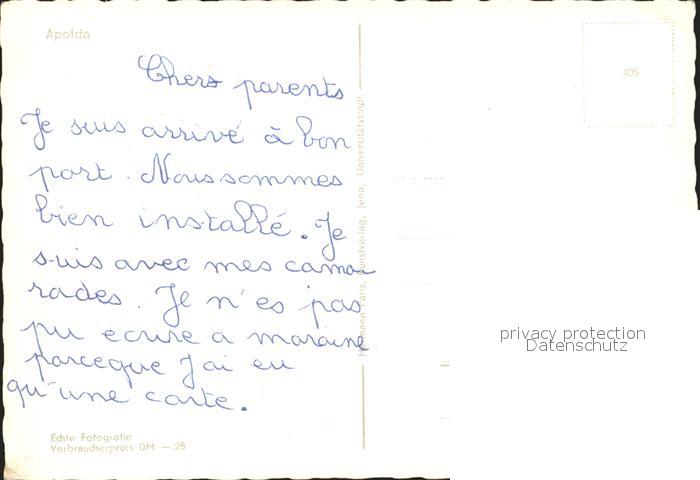 Apolda
405
Chers parents
Je suis arrivé à bon
port. Nous sommes
bien installé. Je
suis avec mes cama-
rades. Je n'es pas
pu ecrire a maraine
parceque J'ai eu
qu'une carte.
Echte Fotografie
Verbraucherpreis DM —.25
Kunstverlag, Jena, Universitätsstadt
privacy protection
Datenschutz